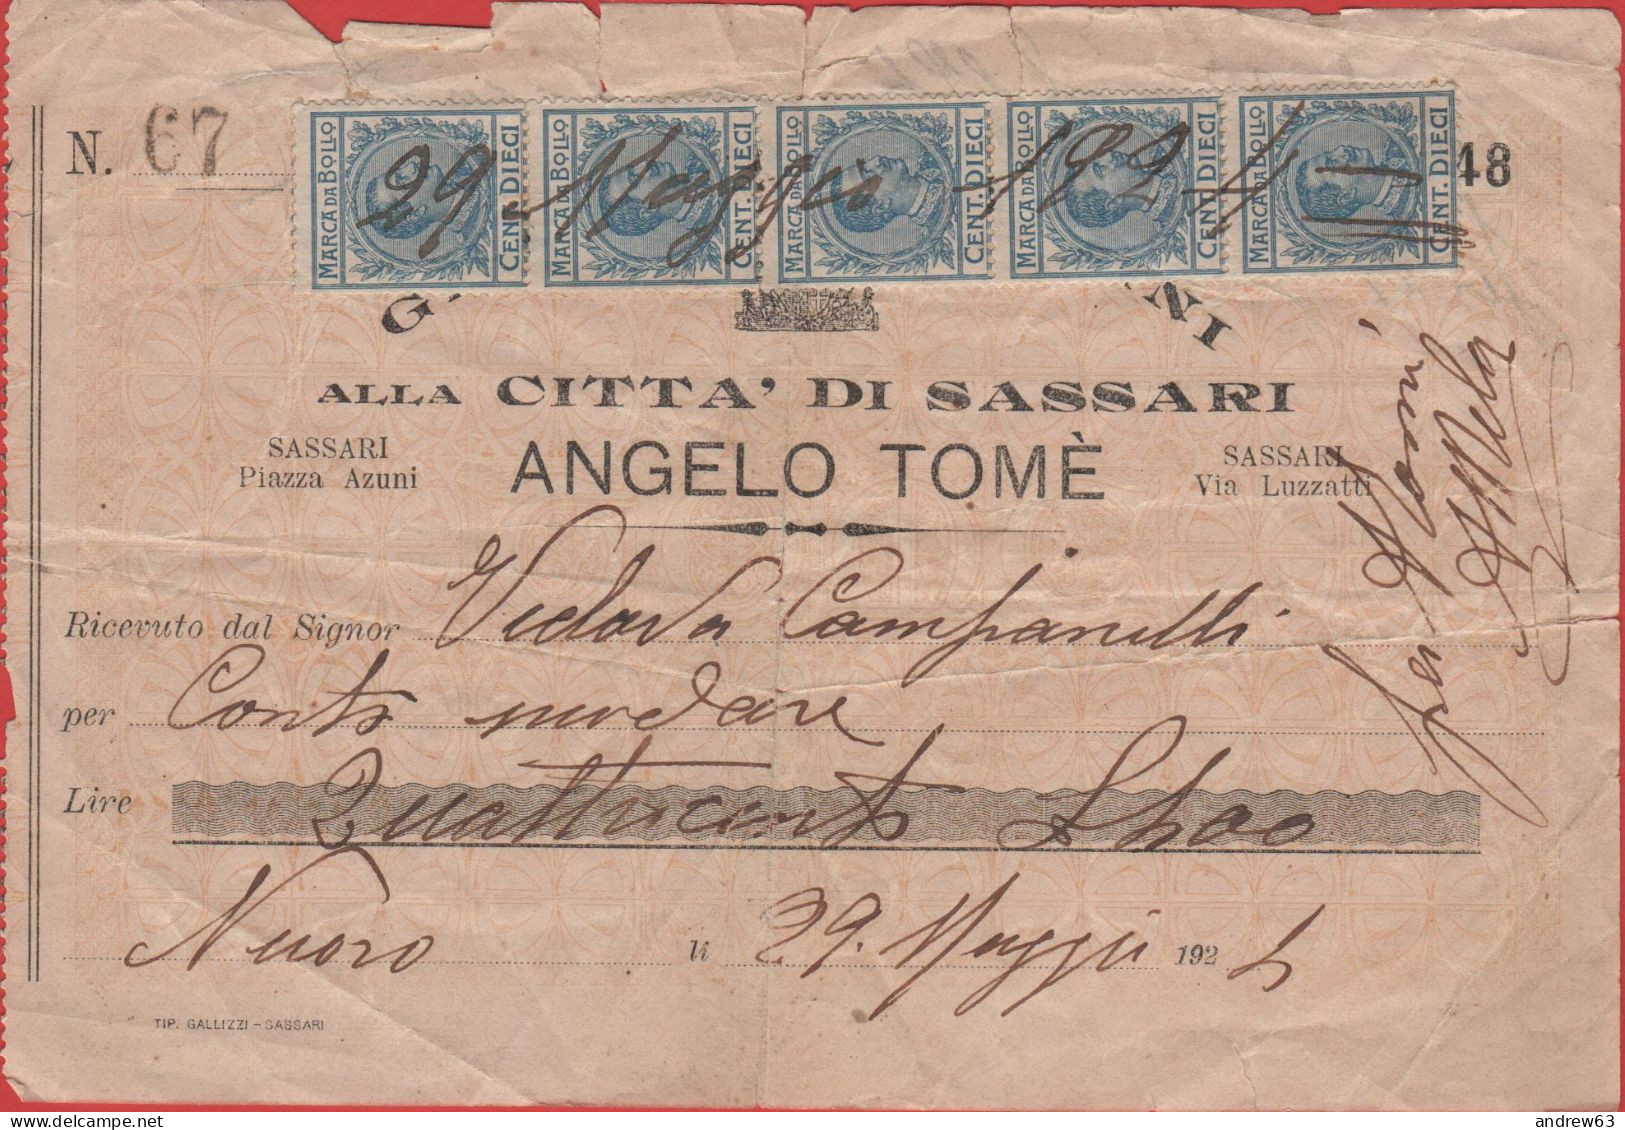 N. 67
MARCA DA BOLLO CENT. DIECI MARCA DA BOLLO CENT. DIECI MARCA DA BOLLO CENT. DIECI MARCA DA BOLLO CENT. DIECI MARCA DA BOLLO CENT. DIECI
29 Maggio 1924
18
G NI
ALLA CITTA' DI SASSARI
SASSARI
Piazza Azuni
ANGELO TOMÈ
SASSARI
Via Luzzatti
Ricevuto dal Signor Vedova Campanelli
per Conto
Lire Quattrocento
Nuoro li 29. Maggio 1924
TIP. GALLIZZI - SASSARI
andrew63